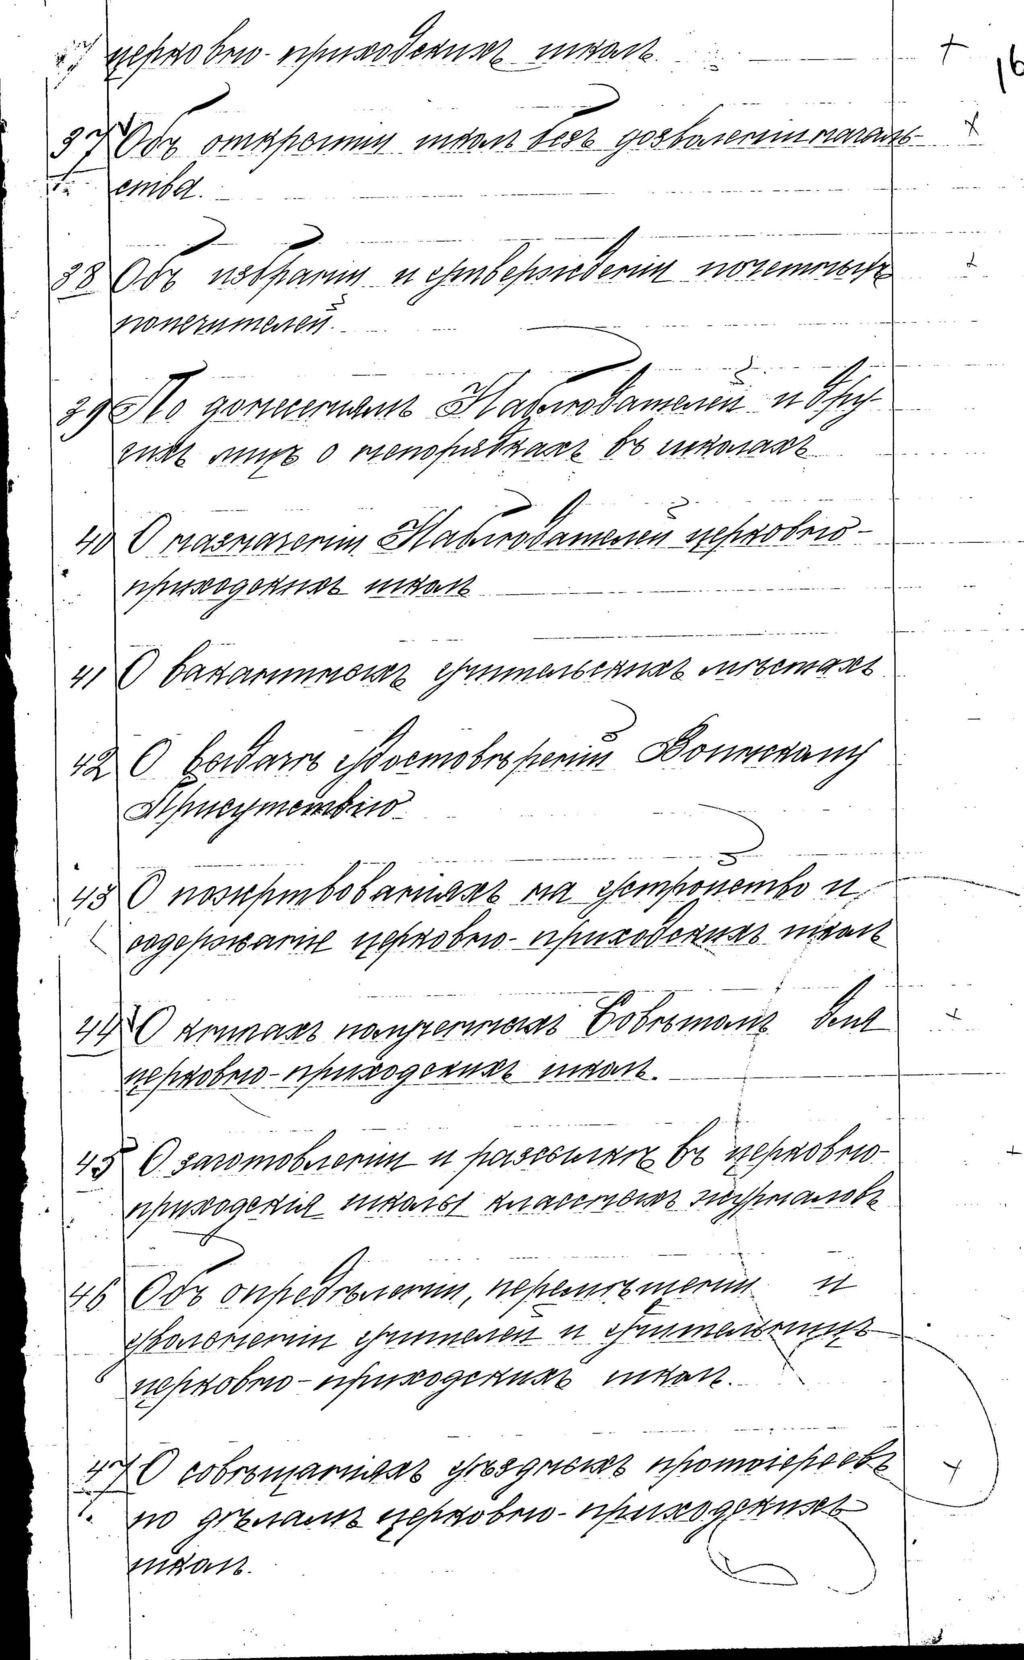 церковно-приходскихъ школъ. +
16
37 Объ открытіи школъ безъ дозволенія началь- +
ства.
38 Объ избраніи и утвержденіи почетныхъ +
попечителей.
39 По донесеніямъ Наблюдателей и дру-
гихъ лицъ о непорядкахъ въ школахъ
40 О назначеніи Наблюдателей церковно-
приходскихъ школъ
41 О вакантныхъ учительскихъ мѣстахъ
42 О выдачѣ удостовѣреній Воинскому
Присутствію
43 О пожертвованіяхъ на устройство и
содержаніе церковно-приходскихъ школъ
44 О книгахъ полученныхъ Совѣтомъ для +
церковно-приходскихъ школъ.
45 О заготовленіи и разсылкѣ въ церковно- +
приходскія школы классныхъ журналовъ
46 Объ опредѣленіи, перемѣщеніи и
увольненіи учителей и учительницъ
церковно-приходскихъ школъ.
47 О совѣщаніяхъ уѣздныхъ протоіереевъ +
по дѣламъ церковно-приходскихъ
школъ.